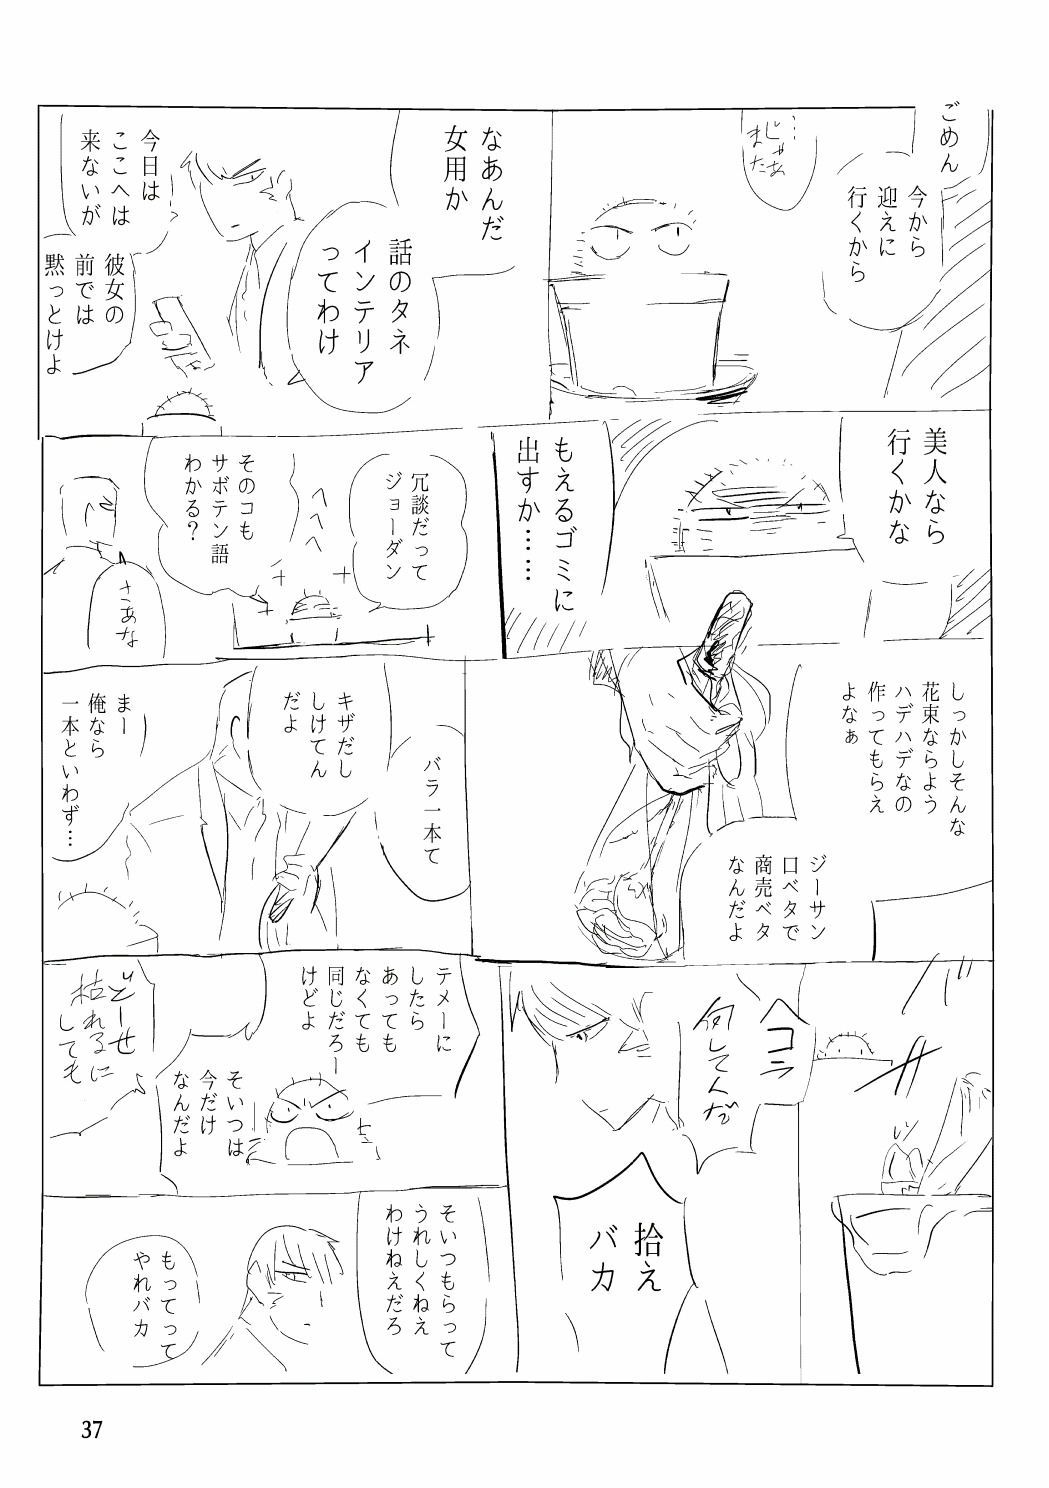 ごめん
今から
迎えに
行くから
…
じゃあ
また
なあんだ
女用か
話のタネ
インテリア
ってわけ
今日は
ここへは
来ないが
彼女の
前では
黙っとけよ
美人なら
行くかな
もえるゴミに
出すか……
冗談だって
ジョーダン
へへへ
そのコも
サボテン語
わかる？
さあな
しっかしそんな
花束ならよう
ハデハデなの
作ってもらえ
よなぁ
ジーサン
口ベタで
商売ベタ
なんだよ
バラ一本て
キザだし
しけてん
だよ
まー
俺なら
一本といわず…
バ
ヘコミ
何してんだ
拾え
バカ
テメーに
したら
あっても
なくても
同じだろー
けどよ
どーせ
枯れるに
しても
そいつは
今だけ
なんだよ
そいつもらって
うれしくねえ
わけねえだろ
もってって
やれバカ
37